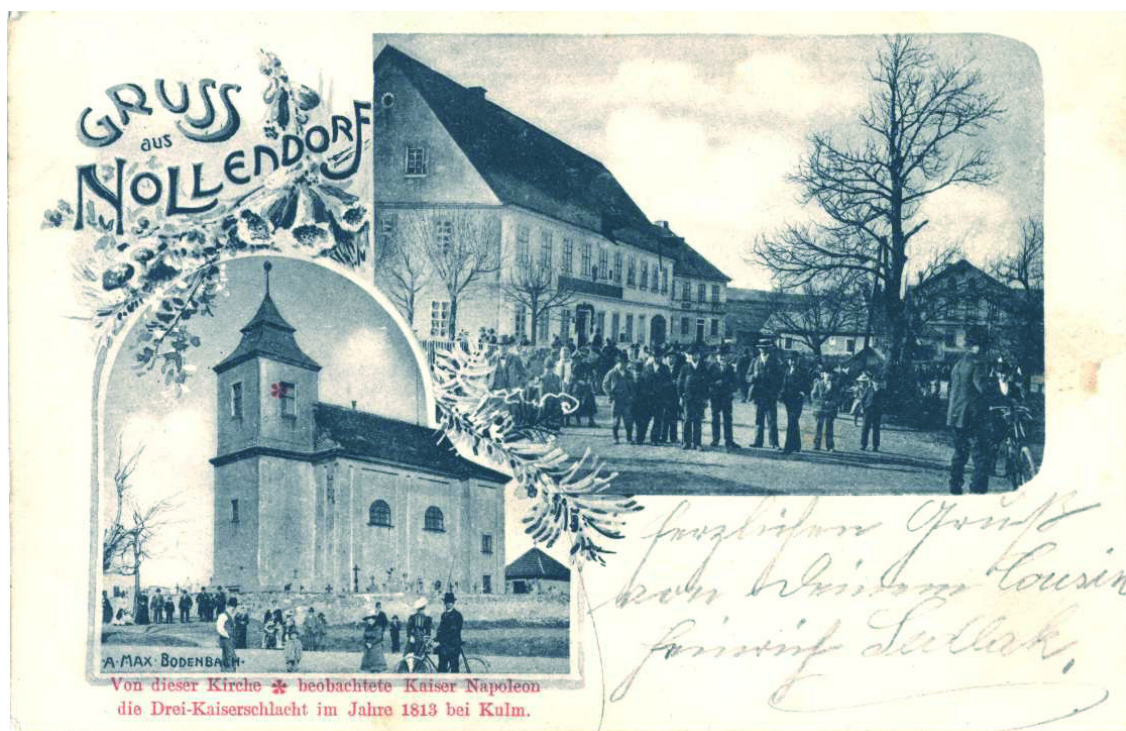 GRUSS
aus
NOLLENDORF
A. MAX BODENBACH.
Von dieser Kirche * beobachtete Kaiser Napoleon
die Drei-Kaiserschlacht im Jahre 1813 bei Kulm.
Herzlichen Gruß
von Deinem Cousin
Heinrich Sedlak.